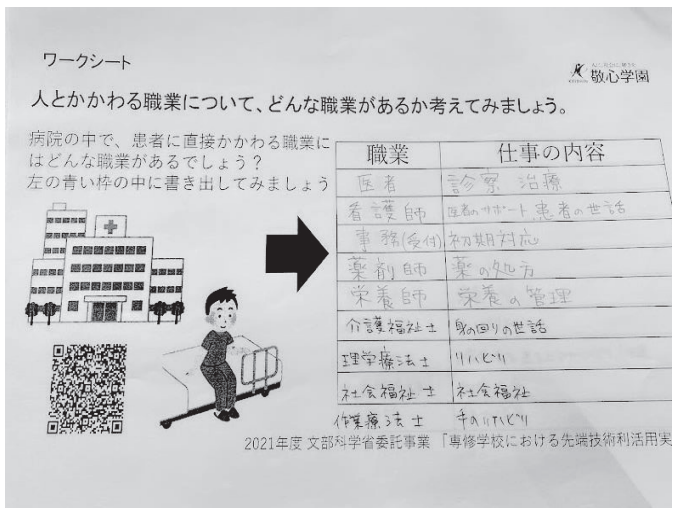 ワークシート
敬心学園
人とかかわる職業について、どんな職業があるか考えてみましょう。
病院の中で、患者に直接かかわる職業に
はどんな職業があるでしょう？
左の青い枠の中に書き出してみましょう
職業 仕事の内容
医者 診察 治療
看護師 医者のサポート 患者の世話
事務(受付) 初期対応
薬剤師 薬の処方
栄養師 栄養の管理
介護福祉士 身の回りの世話
理学療法士 リハビリ
社会福祉士 社会福祉
作業療法士 手のリハビリ
2021年度 文部科学省委託事業 「専修学校における先端技術利活用実